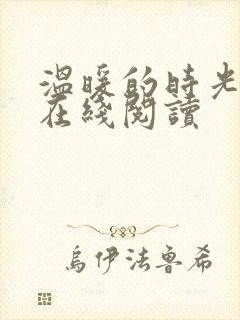 溫暖的時光
在綫閱讀
烏伊法魯希